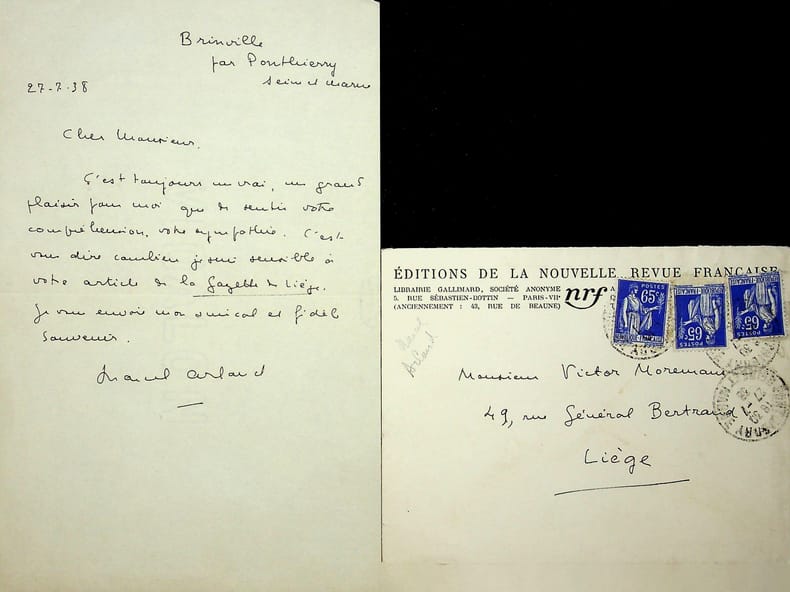 Brinville
par Ponthierry
Seine et Marne
27-7-38
Cher Monsieur,
C'est toujours un vrai, un grand
plaisir pour moi que de sentir votre
compréhension, votre sympathie. C'est
vous dire combien je suis sensible à
votre article de la Gazette de Liége.
Je vous envoie mon amical et fidèle
souvenir.
Marcel Arland
ÉDITIONS DE LA NOUVELLE REVUE FRANÇAISE
LIBRAIRIE GALLIMARD, SOCIÉTÉ ANONYME
5, RUE SÉBASTIEN-BOTTIN — PARIS-VIIe
(ANCIENNEMENT : 43, RUE DE BEAUNE)
nrf
POSTES
65c
POSTES
65c
POSTES
65c
Marcel
Arland
Monsieur Victor Moremans
49, rue Général Bertrand
Liège